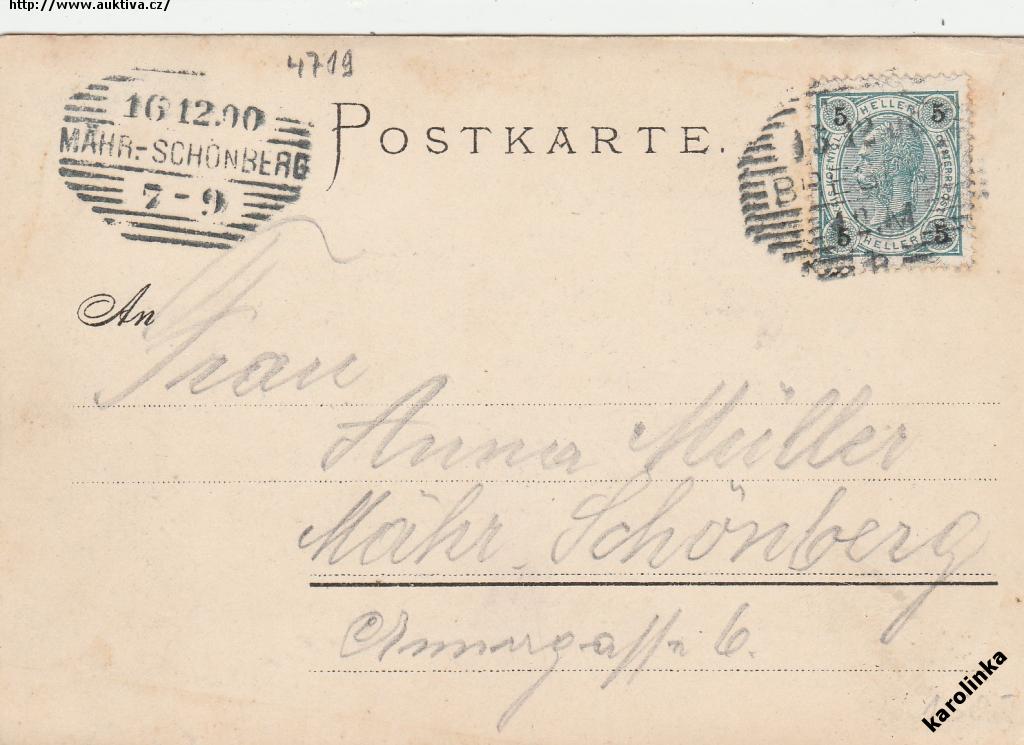 http://www.auktiva.cz/
4719
16 12.00
MÄHR.-SCHÖNBERG
7-9
POSTKARTE.
5 HELLER 5
5 HELLER 5
An
Frau
Anna Müller
Mähr. Schönberg
6.
karolinka